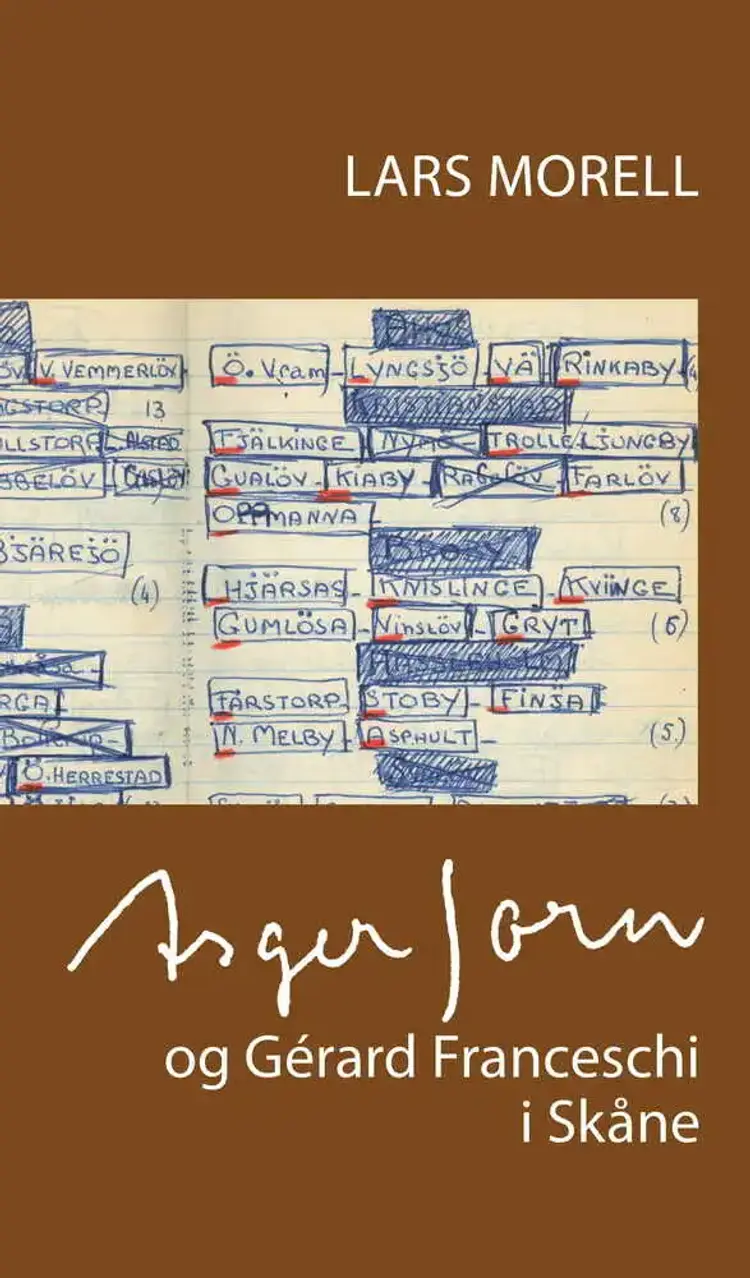 LARS MORELL
V. VEMMERLÖV
Ö. Vram - LYNGSJÖ VÄ RINKABY
13
ALSTAD FJÄLKINGE NYMÖ - TROLLE LJUNGBY
GUALÖV - KIABY - RABELÖV FARLÖV
OPPMANNA (8)
BJÄRESJÖ
(4) HJÄRSAS - KNISLINGE - KVIINGE
GUMLÖSA - NINSLÖV - GRYT (6)
FÄRSTORP STOBY - FINJA
N. MELBY - ASPHULT - (5)
Ö. HERRESTAD
Asger Jorn
og Gérard Franceschi
i Skåne